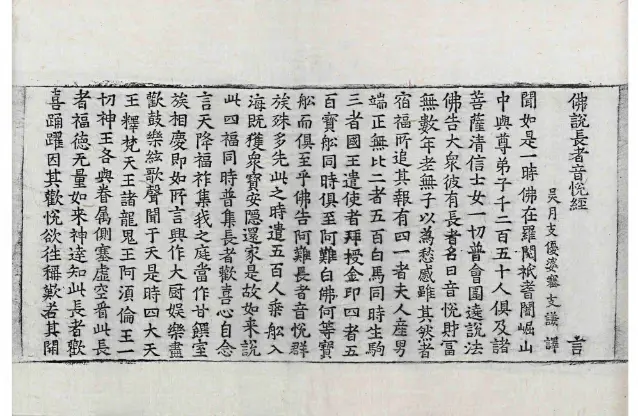 佛說長者音悅經 言
吳月支優婆塞支謙 譯
聞如是一時佛在羅閱祇耆闍崛山
中與尊弟子千二百五十人俱及諸
菩薩清信士女一切普會圍遶說法
佛告大衆彼有長者名曰音悅財富
無數年老無子以為愁慼雖其然者
宿福所追其報有四一者夫人產男
端正無比二者五百白馬同時生駒
三者國王遣使者拜授金印四者五
百寶舩同時俱至阿難白佛何等寶
舩而俱至乎佛告阿難長者音悅群
族殊多先此之時遣五百人乘舩入
海既獲衆寶安隱還家是故如來說
此四福同時普集長者歡喜心自念
言天降福祚集我之庭當作甘饌室
族相慶即如所言興作大厨娛樂盡
歡鼓樂絃歌聲聞于天是時四大天
王釋梵天王諸龍鬼王阿須倫王一
切神王各與眷屬側塞虛空看此長
者福德无量如來神達知此長者歡
喜踊躍因其歡悅欲往稱歎者其開